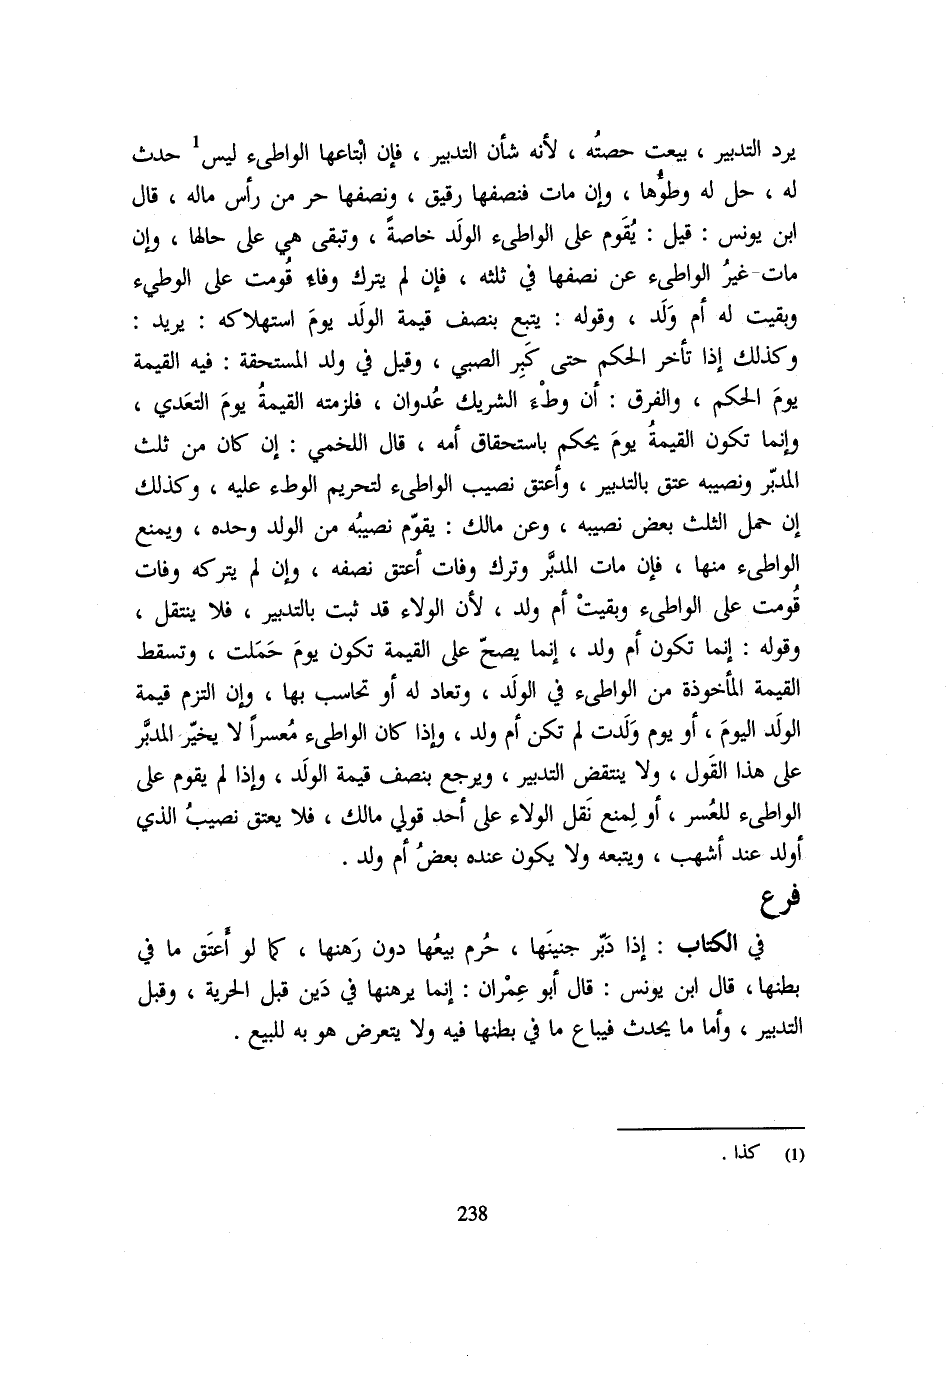 يرد التدبير ، بيعت حصتُه ، لأنه شأن التدبير ، فإن ابْتاعها الواطىء ليس1 حدث
له ، حل له وطؤُها ، وإن مات فنصفها رقيق ، ونصفها حر من رأس ماله ، قال
ابن يونس : قيل : يُقَوم على الواطىء الولَد خاصةً ، وتبقى هي على حالها ، وإن
مات غيرُ الواطىء عن نصفها في ثلثه ، فإن لم يترك وفاء قُومت على الوطيء
وبقيت له أم وَلَد ، وقوله : يتبع بنصف قيمة الولَد يومَ استهلاكه : يريد :
وكذلك إذا تأخر الحكم حتى كَبِر الصبي ، وقيل في ولد المستحقة : فيه القيمة
يومَ الحكم ، والفرق : أن وطْءَ الشريك عُدوان ، فلزمته القيمةُ يومَ التعَدي ،
وإنما تكون القيمةُ يومَ يحكم باستحقاق أمه ، قال اللخمي : إن كان من ثلث
المدبّر ونصيبه عتق بالتدبير ، وأعتق نصيب الواطىء لتحريم الوطء عليه ، وكذلك
إن حمل الثلث بعض نصيبه ، وعن مالك : يقوّم نصيبُه من الولد وحده ، ويمنع
الواطىء منها ، فإن مات المدبَّر وترك وفات أعتق نصفه ، وإن لم يتركه وفات
قُومت على الواطىء وبقيتْ أم ولد ، لأن الولاء قد ثبت بالتدبير ، فلا ينتقل ،
وقوله : إنما تكون أم ولد ، إنما يصحّ على القيمة تكون يومَ حَمَلت ، وتسقط
القيمة المأخوذة من الواطىء في الولَد ، وتعاد له أو تحاسب بها ، وإن التزم قيمة
الولَد اليومَ ، أو يوم وَلَدت لم تكن أم ولد ، وإذا كان الواطىء مُعسراً لا يخيّر المدبَّر
على هذا القَول ، ولا ينتقض التدبير ، ويرجع بنصف قيمة الولَد ، وإذا لم يقوم على
الواطىء للعُسر ، أو لِمنع نَقل الولاء على أحد قولي مالك ، فلا يعتق نصيبُ الذي
أولد عند أشهب ، ويتبعه ولا يكون عنده بعضُ أم ولد .
فرع
في الكتاب : إذا دَبّر جنينَها ، حُرم بيعُها دون رَهنها ، كما لو أَعتَق ما في
بطنها، قال ابن يونس : قال أبو عِمْران : إنما يرهنها في دَين قبل الحرية ، وقبل
التدبير ، وأما ما يحدث فيباع ما في بطنها فيه ولا يتعرض هو به للبيع .
(1) كذا .
238